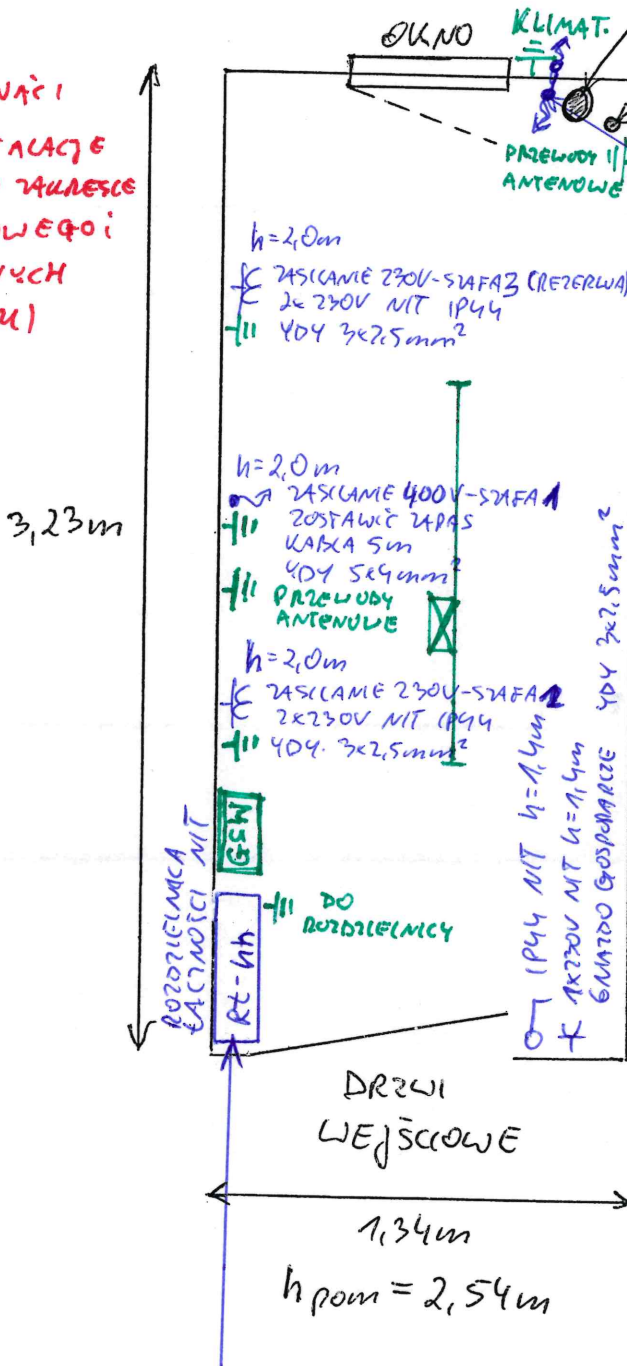 OKNO
KLIMAT.
PRZEWODY
ANTENOWE
h=2,0m
ZASILANIE 230V-SZAFA 3 (REZERWA)
2x230V NIT IP44
YDY 3x2,5mm²
h=2,0m
ZASILANIE 400V-SZAFA 1
ZOSTAWIĆ ZAPAS
KABLA 5m
YDY 5x4mm²
PRZEWODY
ANTENOWE
h=2,0m
ZASILANIE 230V-SZAFA
2x230V NIT IP44
YDY 3x2,5mm²
3,23m
GSW
ROZDZIELNICA
ŁĄCZNOŚCI NIT
DO
ROZDZIELNICY
IP44 NIT h=1,4m
1x230V NIT h=1,4m
GNIAZDO GOSPODARCZE YDY 3x2,5mm²
DRZWI
WEJŚCIOWE
1,34m
h pom = 2,54m